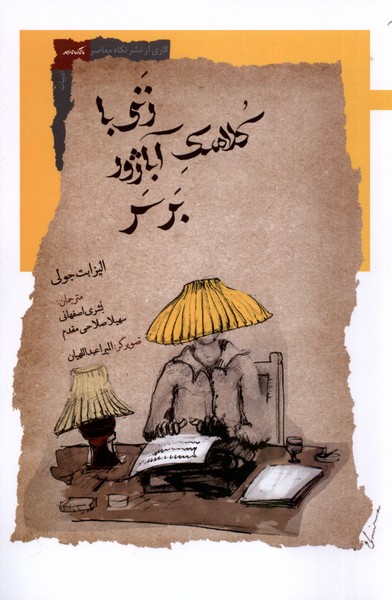 کاری از نشر نگاه معاصر
ادبیات
زنی با
کلاهکِ آباژور
بَر سَر
الیزابت جولی
مترجمان:
بُشری اصفهانی
سهیلا صلاحی مقدم
تصویرگر: المیرا عبداللهیان